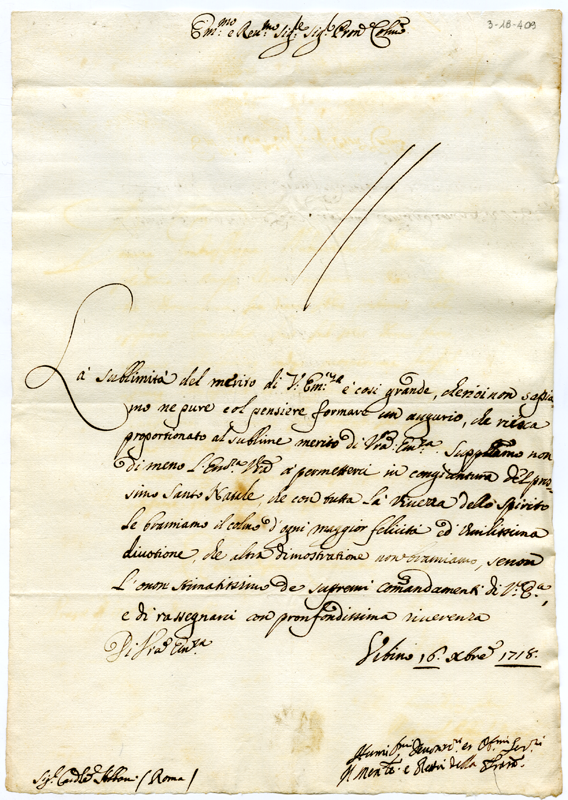 3-18-409
Em.mo e Reu.mo Sig.e Sig.e Pron. Colmo
La sublimità del merito di V. Em.za è così grande, che noi non sapia-
mo ne pure col pensiere formare un augurio, che riesca
proportionato al sublime merito di Vra Em.za. Supplichiamo non
di meno L'Em.za Vra a permetterci in congiuntura del pros-
simo Santo Natale, che con tutta la viuezza dello spirito
le bramiamo il colmo d'ogni maggior felicità ed Vmilissima
diuotione, che altra dimostratione non bramiamo, senon
L'onor stimatissimo de supremi comandamenti di V. E.a,
e di rassegnarci con pronfondissima riuerenza
Di Vra Em.za
Vrbino 16. xbre 1718.
Humi.mi Deuot.mi et Ob.mi Ser.ri
Sig.r Cardle Albani (Roma)